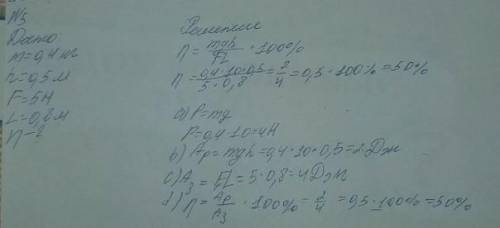 №5
Дано:
m=0,4 кг
h=0,5 м
F=5Н
L=0,8 м
η-?
Решение
η = mgh/FL · 100%
η = 0,4·10·0,5/5·0,8 = 2/4 = 0,5 · 100% = 50%
a) P=mg
P=0,4·10=4Н
b) Aр=mgh=0,4·10·0,5=2 Дж
c) Aз = FL = 5·0,8=4Дж
d) η = Aр/Aз · 100% = 2/4 = 0,5·100% = 50%